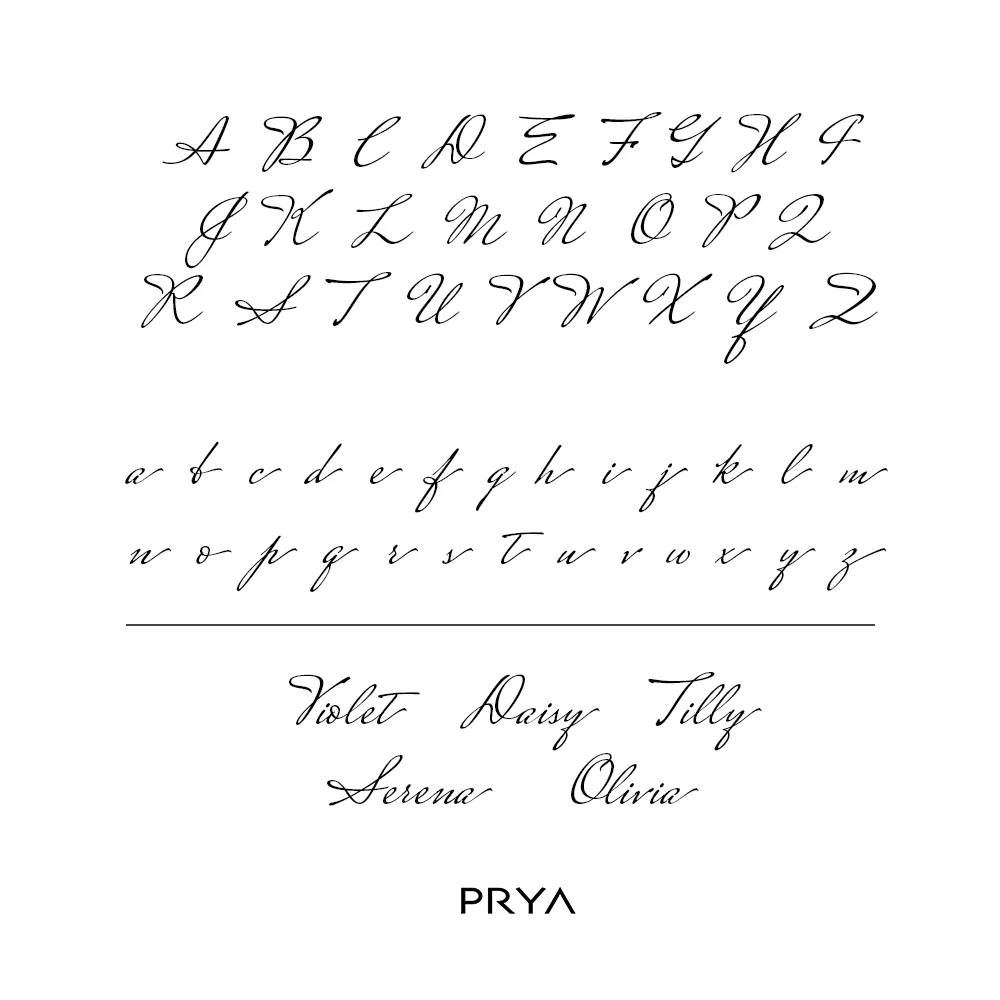 A B C D E F G H I
J K L M N O P Q
R S T U V W X Y Z
a b c d e f g h i j k l m
n o p q r s t u v w x y z
Violet Daisy Tilly
Serena Olivia
PRYA